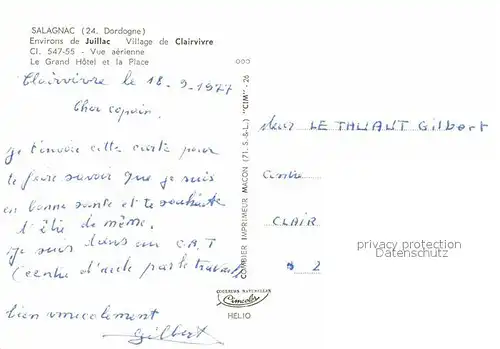 SALAGNAC (24. Dordogne)
Environs de Juillac Village de Clairvivre
Cl. 547-55 - Vue aérienne
Le Grand Hôtel et la Place
Clairvivre le 18-9-1977
Cher copain.
je t'envoie cette carte pour
te faire savoir que je suis
en bonne santé et te souhaite
l'être de même.
je suis dans un C.A.T
(centre d'aide par le travail
bien amicalement
Gilbert
COMBIER IMPRIMEUR MACON (71. S.-&-L.) "CIM" - 26
COULEURS NATURELLES
Cimcolor
HELIO
LE THUAUT Gilbert
Centre
CLAIR
2
privacy protection
Datenschutz